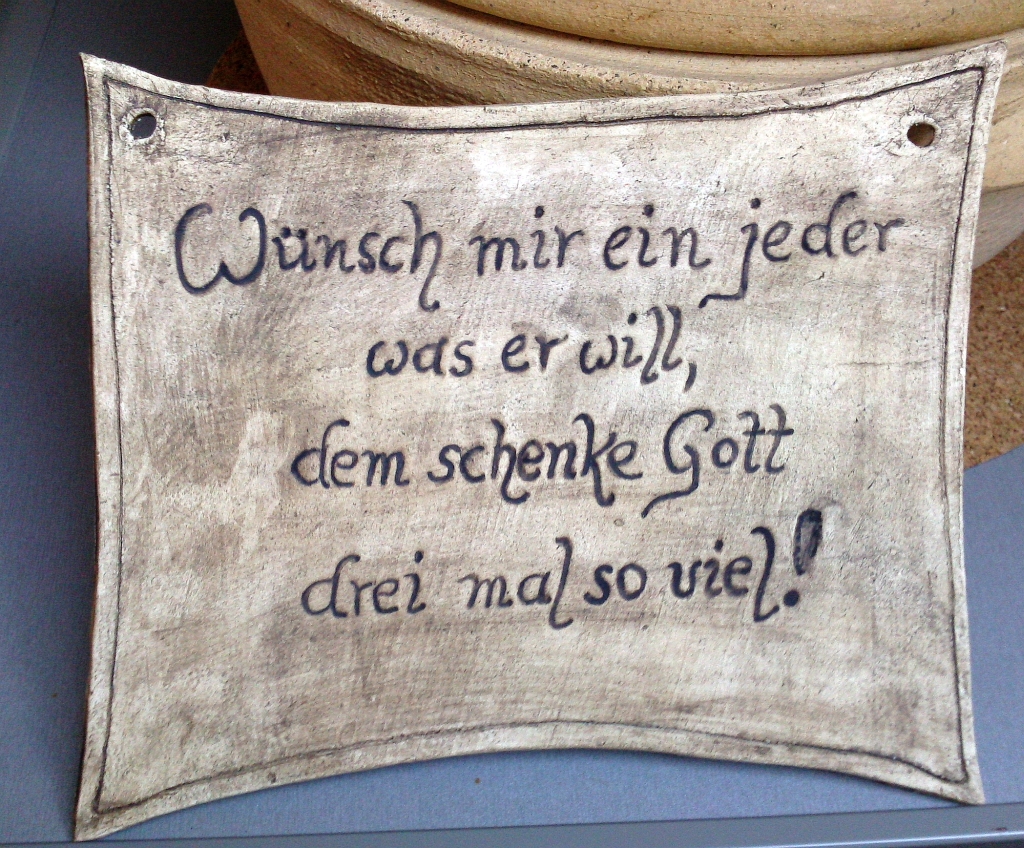 Wünsch mir ein jeder
was er will,
dem schenke Gott
drei mal so viel!